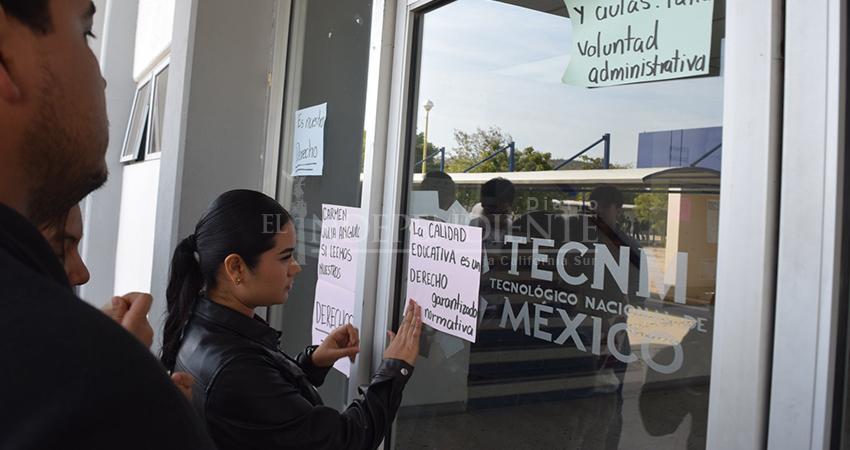 Y aulas: falta
voluntad
administrativa
Es nuestro
Derecho
CARMEN
JULIA ANGULO
SI LEEMOS
NUESTROS
DERECHOS
La CALIDAD
EDUCATIVA es un
DERECHO
garantizado
normativa
TECNM
TECNOLÓGICO NACIONAL DE
MÉXICO
EL INDEPENDIENTE
California Sur